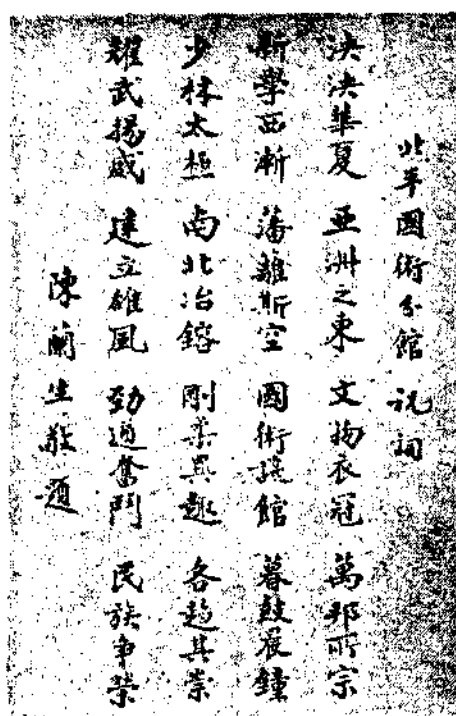 北平國術分館 祝詞
泱泱華夏 亞洲之東 文物衣冠 萬邦所宗
新學西漸 藩籬斯空 國術設館 暮鼓晨鐘
少林太極 南北冶鎔 剛柔異趣 各趨其崇
耀武揚威 建立雄風 勁遒奮鬥 民族爭榮
陳蘭生敬題